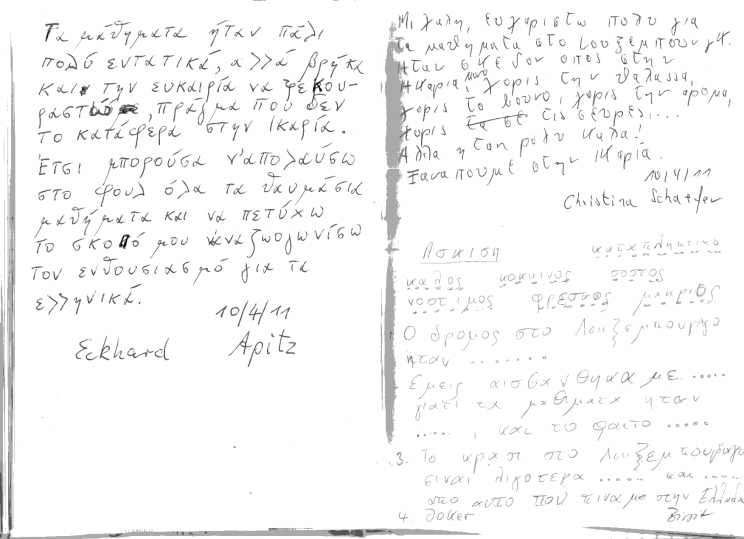 Τα μαθήματα ήταν πάλι
πολύ εντατικά, αλλά βρήκα
και την ευκαιρία να ξεκου-
ραστώ, πράγμα που δεν
το κατάφερα στην Ικαρία.
Έτσι μπορούσα ν'απολαύσω
στο φουλ όλα τα θαυμάσια
μαθήματα και να πετύχω
το σκοπό μου να αναζωογονίσω
τον ενθουσιασμό για τα
ελληνικά.
10/4/11
Eckhard Apitz
Μιχαλη, ευχαριστω πολυ για
τα μαθηματα στο Λουξεμπουργκ.
Ηταν σχεδον οπος στην
Ικαρια, μονο χορις την θαλασσα,
χορις το βουνο, χορις την δρομα,
χορις τις σευρες....
Αλλα ηταν πολυ καλα!
Ξαναπουμε στην Ικαρία.
10/4/11
Christina Schaefer
Ασκιση καταπληκτικο
καλος κοκκινος ζεστος
νοστιμος φρεσκος μακριος
Ο δρομος στο Λουξεμπουργο
ηταν ........
Εμεις αισθανθηκαμε .....
γιατι τα μαθιματα ηταν
....., και το φαιτο .....
3. Το κρασι στο Λουξεμπουργο
ειναι λιγοτερα ..... και .....
απο αυτο που πιναμε στην Ελλαδα
4. Joker Birgit